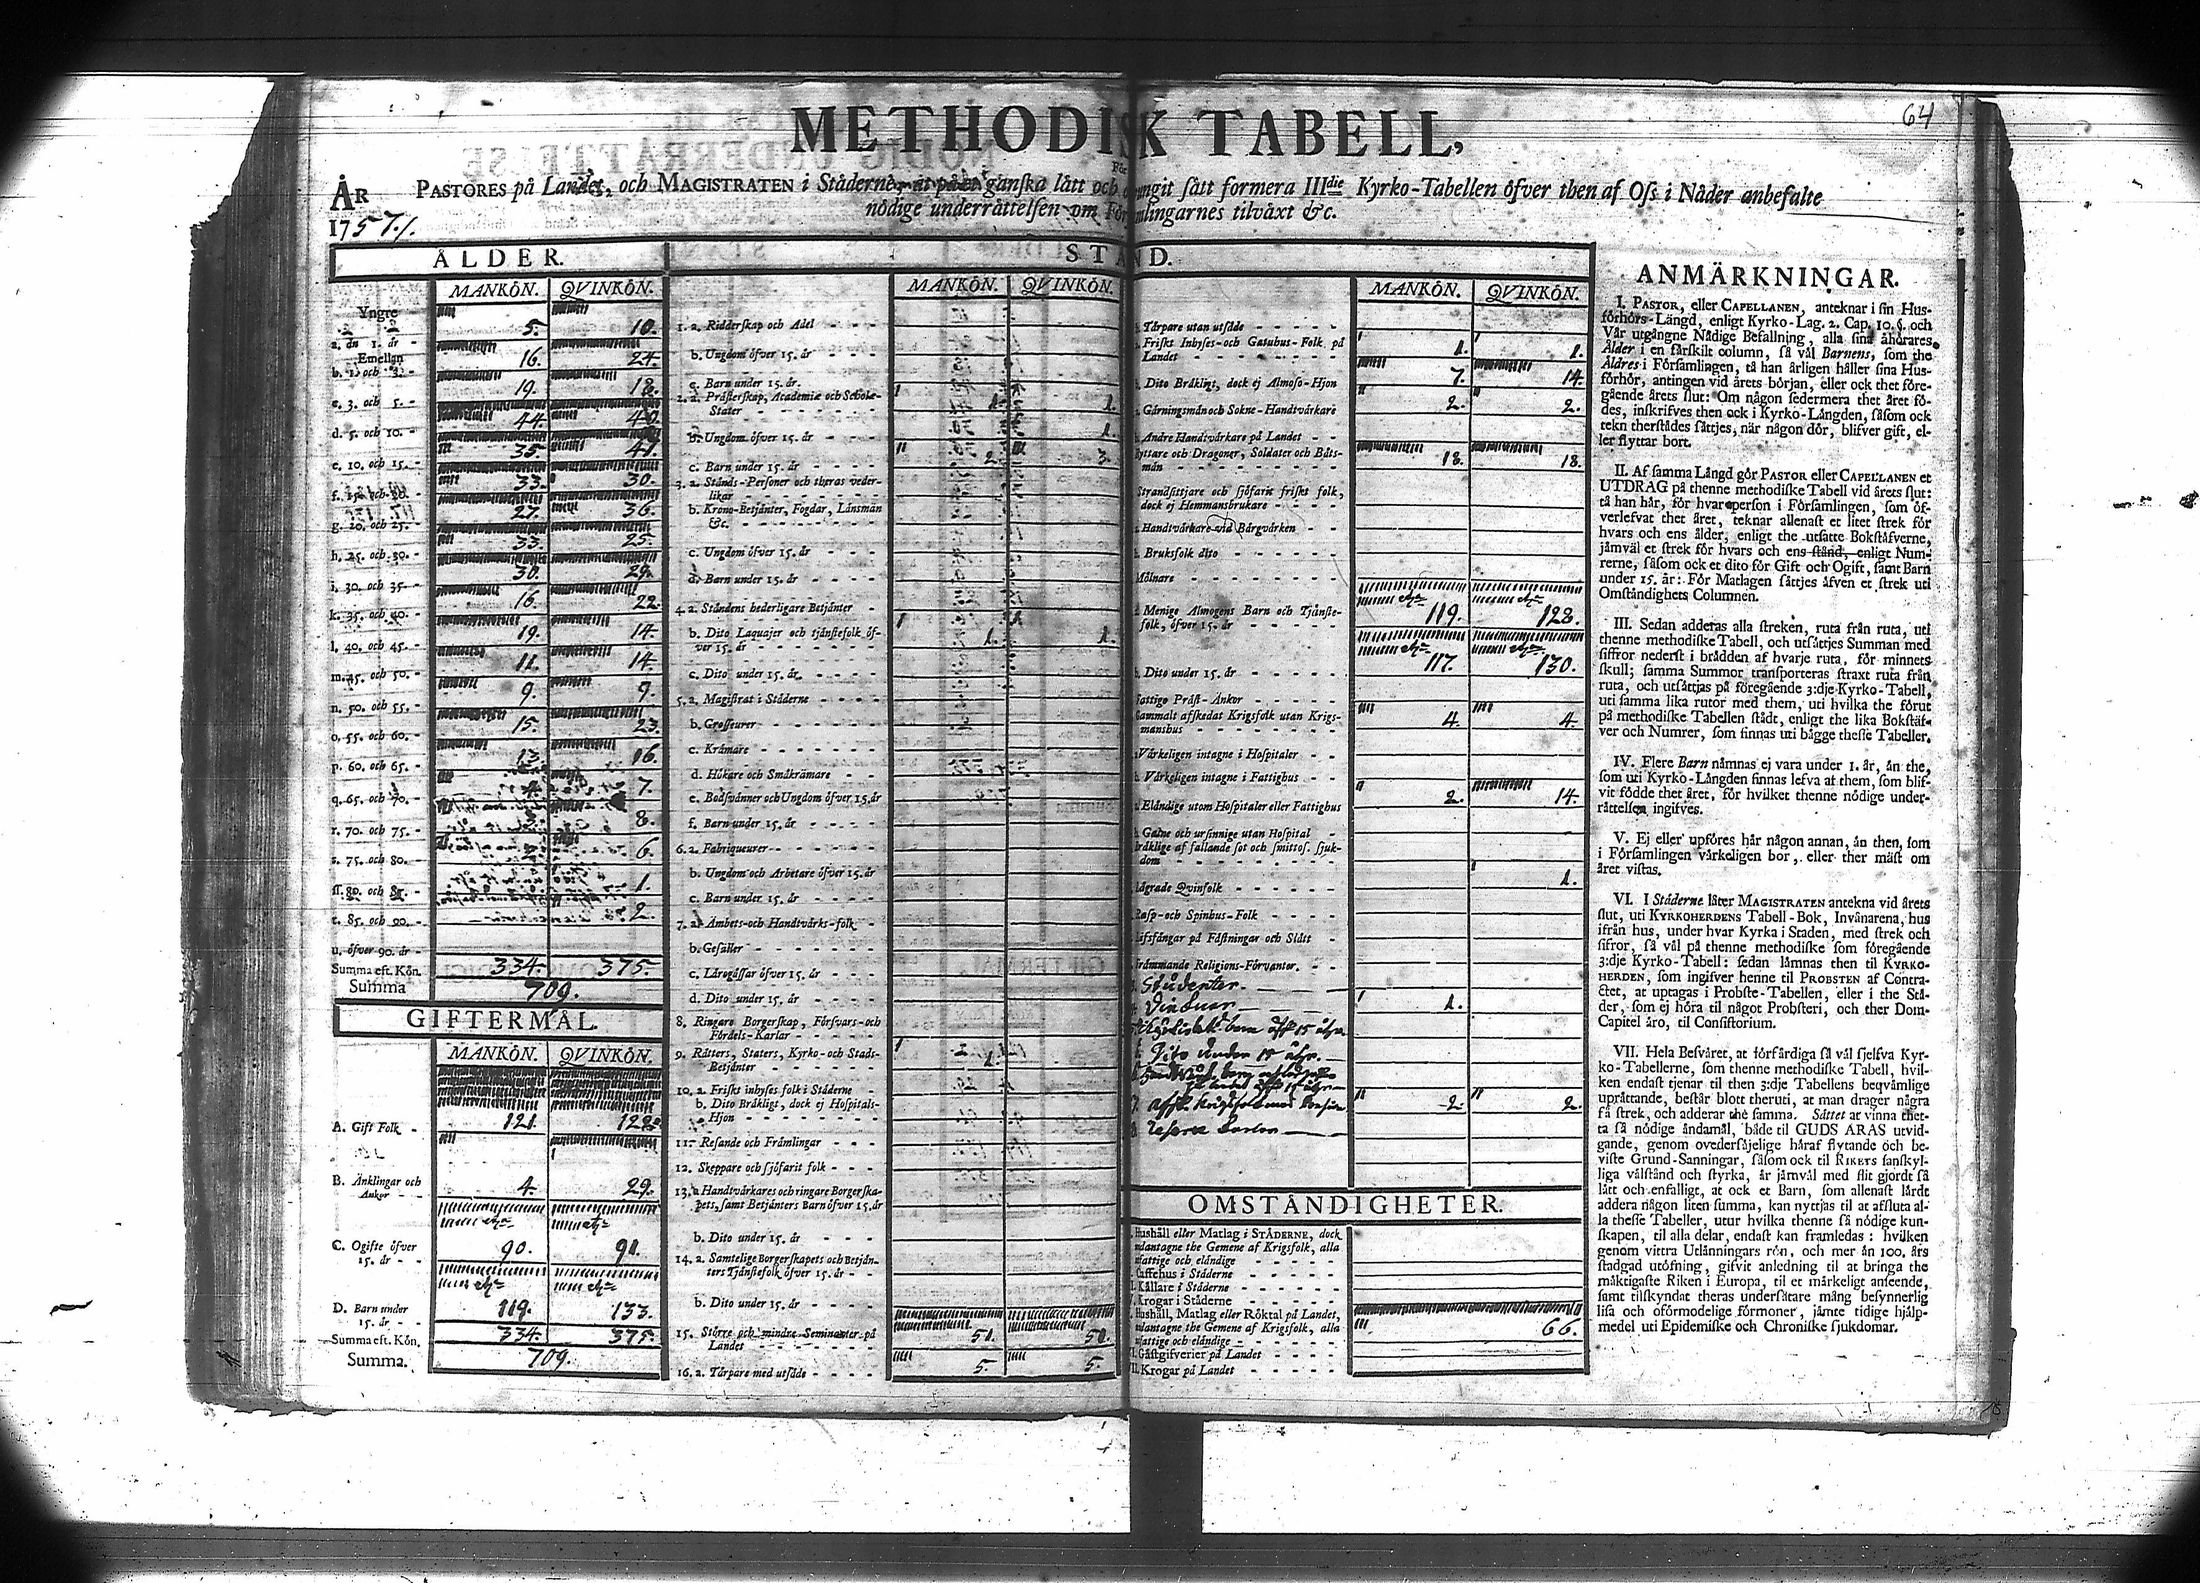 64
METHODISK TABELL,
För
ÅR PASTORES på Landet, och MAGISTRATEN i Städerne, at på et ganska lätt och tvungit sätt formera IIIdie Kyrko-Tabellen öfver then af Oss i Nåder anbefalte
1757. nödige underrättelsen om Församlingarnes tilväxt &c.
ÅLDER.
MANKÖN. QVINKÖN.
Yngre
a. än 1. år - 5. 10.
Emellan
b. 1. och 3. - 16. 24.
c. 3. och 5. - 19. 18.
d. 5. och 10. - 44. 40.
e. 10. och 15. - 35. 41.
f. 15. och 20. - 33. 30.
g. 20. och 25. - 27. 36.
h. 25. och 30. - 33. 25.
i. 30. och 35. - 30. 29.
k. 35. och 40. - 16. 22.
l. 40. och 45. - 19. 14.
m. 45. och 50. - 11. 14.
n. 50. och 55. - 9. 9.
o. 55. och 60. - 15. 23.
p. 60. och 65. - 13. 16.
q. 65. och 70. - 7.
r. 70. och 75. - 8.
s. 75. och 80. - 6.
ſſ. 80. och 85. - 1.
t. 85. och 90. - 2.
u. öfver 90. år -
Summa eft. Kön. 334. 375.
Summa 709.
GIFTERMÅL.
MANKÖN. QVINKÖN.
A. Gift Folk - 121. 122.
B. Änklingar och
Änkor - - 4. 29.
C. Ogifte öfver
15. år - - 90. 91.
D. Barn under
15. år - - 119. 133.
Summa eft. Kön. 334. 375.
Summa. 709.
STÅND.
MANKÖN. QVINKÖN.
1. a. Ridderskap och Adel - - -
b. Ungdom öfver 15. år - - -
c. Barn under 15. år.
2. a. Prästerskap, Academiæ och Schole-
Stater - - - - - 1. 1.
b. Ungdom öfver 15. år - - - 1.
c. Barn under 15. år - - - - 2. 3.
3. a. Stånds-Personer och theras veder-
likar - - - - - -
b. Krono-Betjänter, Fogdar, Länsmän
&c. - - - - - -
c. Ungdom öfver 15. år - - - -
d. Barn under 15. år - - - -
4. a. Ståndens hederligare Betjänter -
b. Dito Laquajer och tjänstefolk öf-
ver 15. år - - - - - 1. 1.
c. Dito under 15. år - - - -
5. a. Magistrat i Städerne - - - -
b. Grosseurer - - - - - -
c. Krämare - - - - - -
d. Hökare och Småkrämare - -
e. Bodsvänner och Ungdom öfver 15. år
f. Barn under 15. år - - - -
6. a. Fabriqueurer - - - - - -
b. Ungdom och Arbetare öfver 15. år
c. Barn under 15. år - - - -
7. a. Ämbets- och Handtvärks-folk -
b. Gesäller - - - - - -
c. Lärogåssar öfver 15. år - - -
d. Dito under 15. år - - - -
8. Ringare Borgerskap, Försvars- och
Fördels-Karlar - - - - -
9. Rätters, Staters, Kyrko- och Stads-
Betjänter - - - - - 1.
10. a. Friskt inhyses folk i Städerne -
b. Dito Bräkligt, dock ej Hospitals-
Hjon - - - - - -
11. Resande och Främlingar - - -
12. Skeppare och sjöfarit folk - - -
13. a. Handtvärkares och ringare Borgerska-
pets, samt Betjänters Barn öfver 15. år
b. Dito under 15. år - - - -
14. a. Samtelige Borgerskapets och Betjän-
ters Tjänstefolk öfver 15. år - - -
b. Dito under 15. år - - - -
15. Större och mindre Seminanter på
Landet - - - - - - 51. 50.
16. a. Tårpare med utsäde - - - - 5. 5.
MANKÖN. QVINKÖN.
Tårpare utan utsäde - - - - -
Friskt Inhyses- och Gatuhus-Folk på
Landet - - - - - - 1. 1.
Dito Bräkligt, dock ej Almoso-Hjon 7. 14.
Gärningsmän och Sokne-Handtvärkare 2. 2.
Andre Handtvärkare på Landet - -
Ryttare och Dragoner, Soldater och Båts-
män - - - - - - 18. 18.
Strandsittjare och sjöfarit friskt folk,
dock ej Hemmansbrukare - - -
Handtvärkare vid Bärgvärken - -
Bruksfolk dito - - - - -
Mölnare - - - - - -
Menige Almogens Barn och Tjänste-
folk, öfver 15. år - - - - 119. 128.
Dito under 15. år - - - - 117. 130.
Fattige Präst-Änkor - - - -
Gammalt afskedat Krigsfolk utan Krigs-
manshus - - - - - - 4. 4.
Värkeligen intagne i Hospitaler - -
Värkeligen intagne i Fattighus - -
Eländige utom Hospitaler eller Fattighus 2. 14.
Galne och ursinnige utan Hospital -
Bräklige af fallande sot och smittos. sjuk-
dom - - - - - - -
Lägrade Qvinfolk - - - - - 1.
Rasp- och Spinhus-Folk - - - -
Lifsfångar på Fästningar och Slått -
Främmande Religions-Förvanter. - -
Studenter.
1.
Dito under 15 åhr.
2. 2.
OMSTÄNDIGHETER.
Hushåll eller Matlag i STÄDERNE, dock
undantagne the Gemene af Krigsfolk, alla
fattige och eländige - - - - -
Caffehus i Städerne - - - - -
Källare i Städerne - - - - -
Krogar i Städerne - - - - -
Hushåll, Matlag eller Röktal på Landet,
undantagne the Gemene af Krigsfolk, alla
fattige och eländige - - - - 66.
Gästgifverier på Landet - - - -
Krogar på Landet - - - - -
ANMÄRKNINGAR.
I. PASTOR, eller CAPELLANEN, anteknar i sin Hus-
förhörs-Längd, enligt Kyrko-Lag. 2. Cap. 10. §. och
Vår utgångne Nådige Befallning, alla sina åhörares
Ålder i en särskilt column, så väl Barnens, som the
Äldres i Församlingen, tå han årligen håller sina Hus-
förhör, antingen vid årets början, eller ock thet före-
gående årets slut: Om någon sedermera thet året fö-
des, inskrifves then ock i Kyrko-Längden, såsom ock
tekn therstädes sättjes, när någon dör, blifver gift, el-
ler flyttar bort.
II. Af samma Längd gör PASTOR eller CAPELLANEN et
UTDRAG på thenne methodiske Tabell vid årets slut:
tå han här, för hvar person i Församlingen, som öf-
verlefvat thet året, teknar allenast et litet strek för
hvars och ens ålder, enligt the utsatte Bokstäfverne,
jämväl et strek för hvars och ens stånd, enligt Num-
rerne, såsom ock et dito för Gift och Ogift, samt Barn
under 15. år: För Matlagen sättjes äfven et strek uti
Omständighets Columnen.
III. Sedan adderas alla streken, ruta från ruta, uti
thenne methodiske Tabell, och utsättjes Summan med
siffror nederst i brädden af hvarje ruta, för minnets
skull; samma Summor transporteras straxt ruta från
ruta, och utsättjas på föregående 3:dje Kyrko-Tabell,
uti samma lika rutor med them, uti hvilka the förut
på methodiske Tabellen städt, enligt the lika Bokstäf-
ver och Numrer, som finnas uti bägge thesse Tabeller.
IV. Flere Barn nämnas ej vara under 1. år, än the,
som uti Kyrko-Längden finnas lefva af them, som blif-
vit födde thet året, för hvilket thenne nödige under-
rättelsen ingifves.
V. Ej eller upföres här någon annan, än then, som
i Församlingen värkeligen bor, eller ther mäst om
året vistas.
VI. I Städerne låter MAGISTRATEN antekna vid årets
slut, uti KYRKOHERDENS Tabell-Bok, Invånarena, hus
ifrån hus, under hvar Kyrka i Staden, med strek och
sifror, så väl på thenne methodiske som föregående
3:dje Kyrko-Tabell: sedan lämnas then til KYRKO-
HERDEN, som ingifver henne til PROBSTEN af Contra-
ctet, at uptagas i Probste-Tabellen, eller i the Stä-
der, som ej höra til något Probsteri, och ther Dom-
Capitel äro, til Consistorium.
VII. Hela Besväret, at förfärdiga så väl sjelfva Kyr-
ko-Tabellerne, som thenne methodiske Tabell, hvil-
ken endast tjenar til then 3:dje Tabellens beqvämlige
uprättande, består blott theruti, at man drager några
få strek, och adderar the samma. Sättet at vinna thet-
ta så nödige ändamål, både til GUDS ÄRAS utvid-
gande, genom ovedersäjelige häraf flytande och be-
viste Grund-Sanningar, såsom ock til RIKETS sanskyl-
liga välstånd och styrka, är jämväl med flit gjordt så
lätt och enfalligt, at ock et Barn, som allenast lärdt
addera någon liten summa, kan nyttjas til at afsluta al-
la thesse Tabeller, utur hvilka thenne så nödige kun-
skapen, til alla delar, endast kan framledas: hvilken
genom vittra Utlänningars rön, och mer än 100. års
stadgad utöfning, gifvit anledning til at bringa the
mäktigaste Riken i Europa, til et märkeligt anseende,
samt tilskyndat theras undersåtare mång besynnerlig
lisa och oförmodelige förmoner, jämte tidige hjälp-
medel uti Epidemiske och Chroniske sjukdomar.